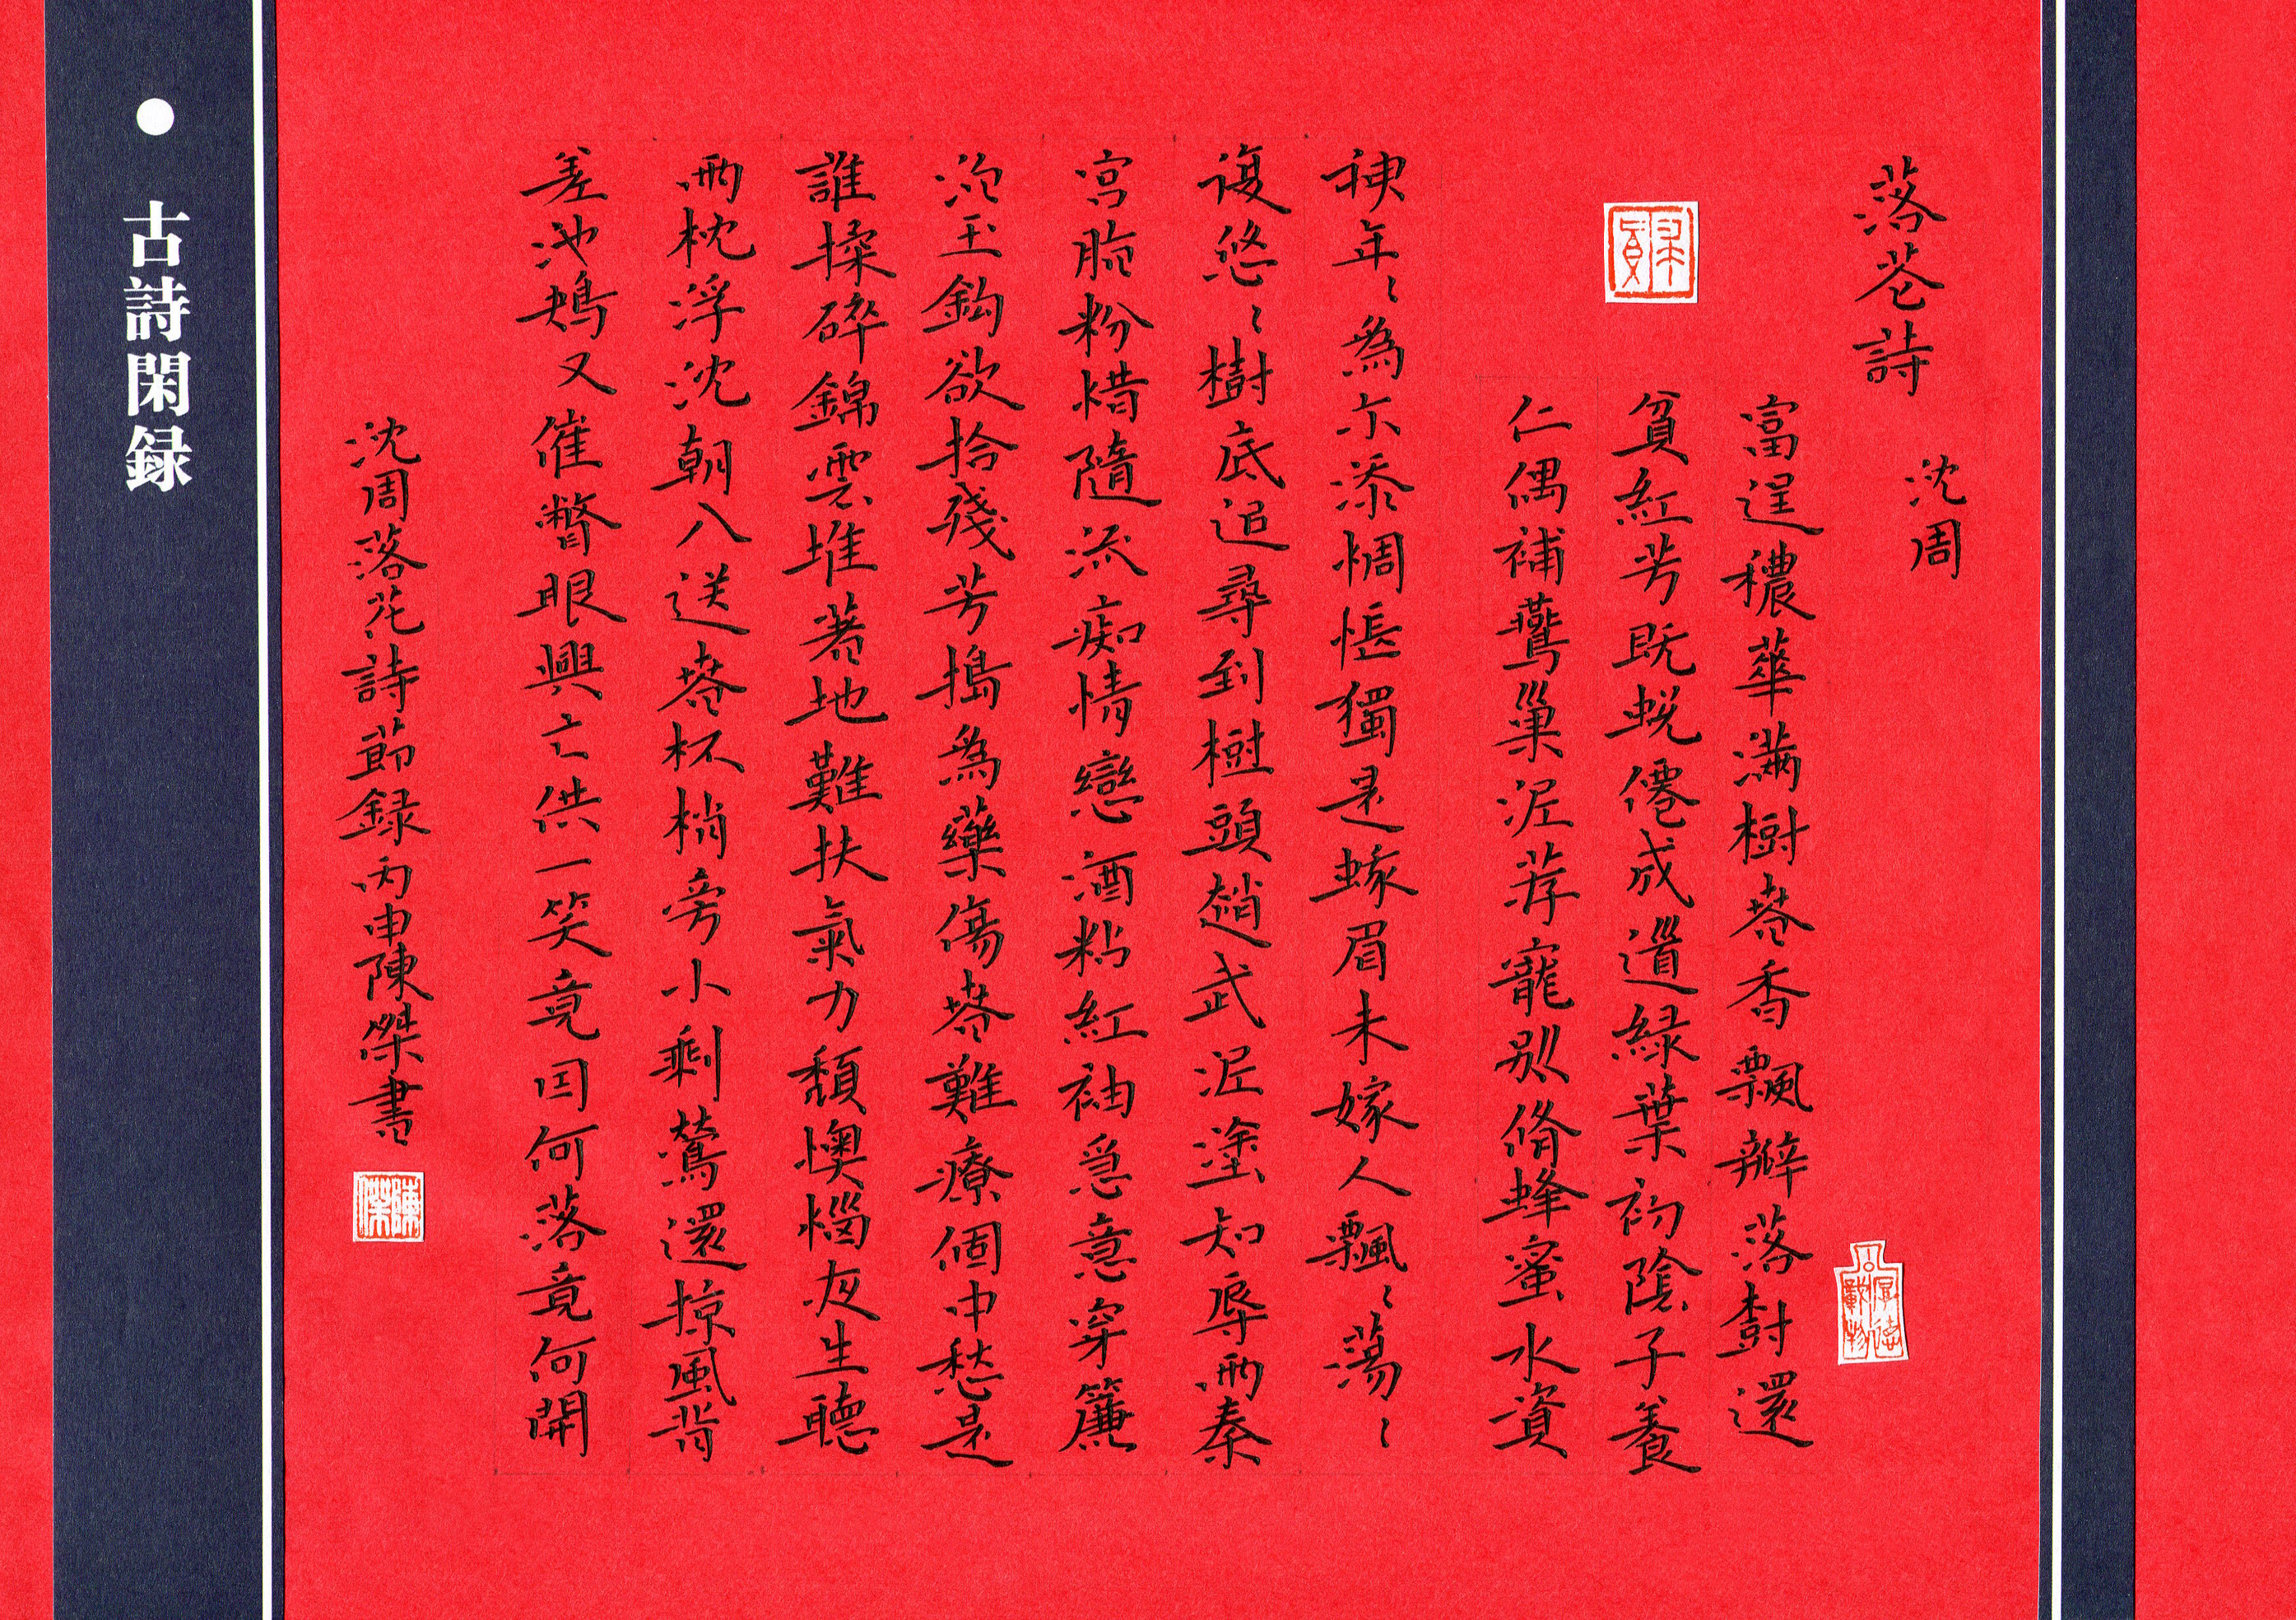 落花詩
沈周
富逞穠華滿樹春香飄瓣落樹還
貧紅芳既蛻僊成道綠葉初陰子養
仁偶補燕巢泥荐寵別脩蜂蜜水資
神年〻為爾添惆悵獨是蛾眉未嫁人飄〻蕩〻
復悠〻樹底追尋到樹頭趙武泥塗知辱雨秦
宮脂粉惜隨流痴情戀酒粘紅袖急意穿簾
泥玉鈎欲拾殘芳搗為藥傷春難療個中愁是
誰揉碎錦雲堆著地難扶氣力頹懊惱夜生聽
雨枕浮沈朝入送春杯梢旁小剩鶯還掠風背
差池鴆又催瞥眼興亡供一笑竟因何落竟何開
沈周落花詩節錄丙申陳傑書
陳傑
厚德載物
古詩閑録